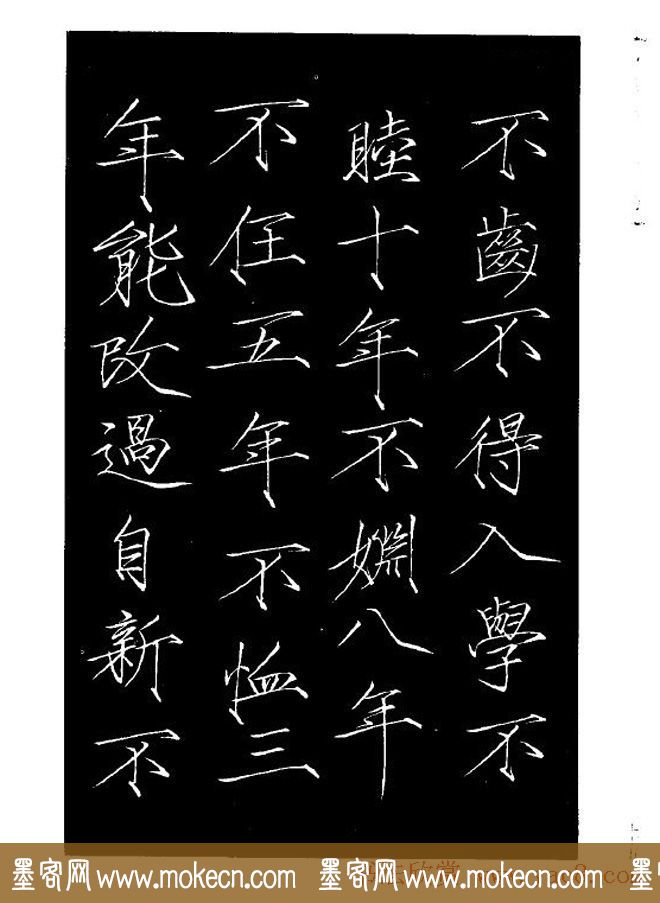 不齒不得入學不
睦十年不婣八年
不任五年不恤三
年能改過自新不
墨客网 www.mokecn.com 墨客网 www.mokecn.com